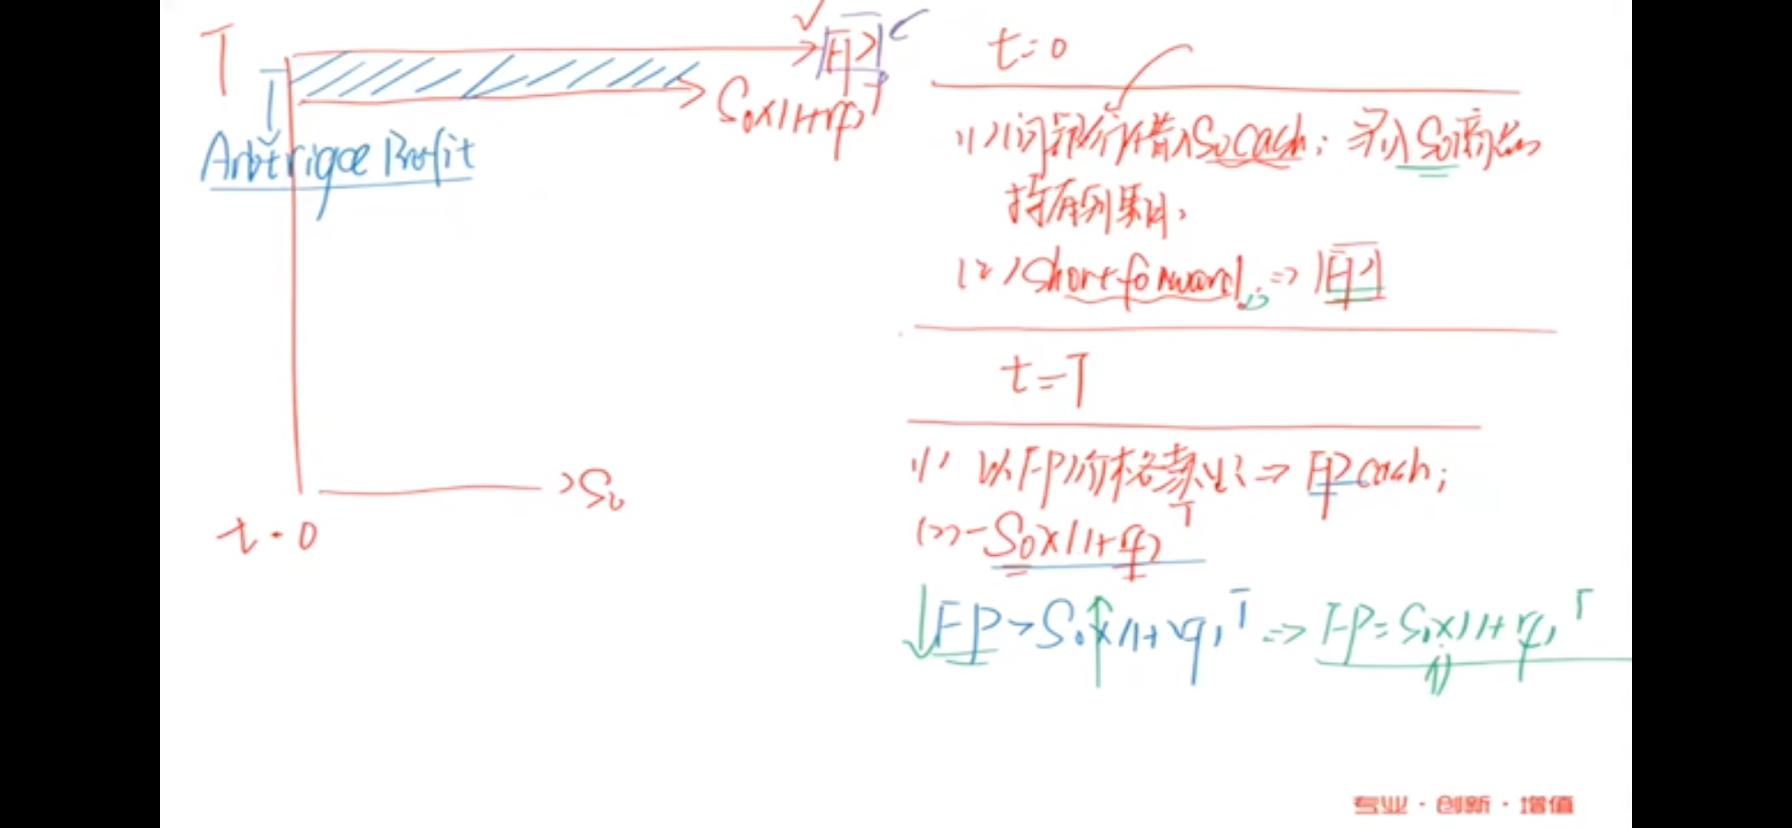 T
FP
S₀×(1+rf)
Arbtrigae Profit
S₀
t=0
t=0
(1) 问银行借入S₀cash; 买入S₀商品
持有到期,
(2) Short forward, => FP
t=T
(1) 以FP价格卖出 => FP cash;
(2) -S₀×(1+rf)ᵀ
↓FP>S₀×(1+rf)ᵀ => FP=S₀×(1+rf)ᵀ
专业·创新·增值